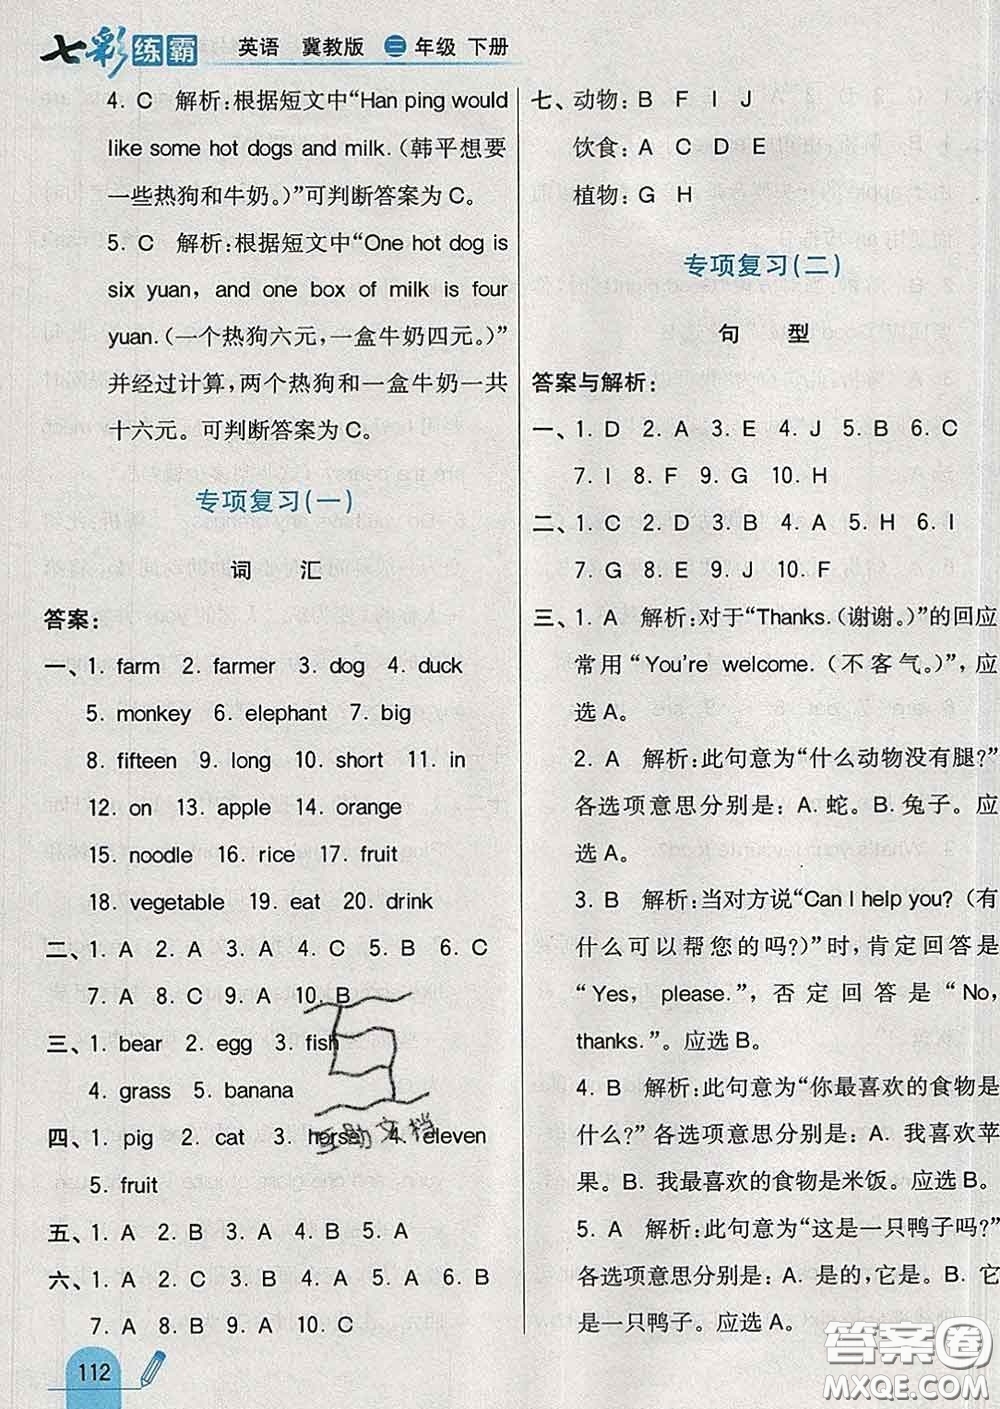 七彩练霸 英语 冀教版 三年级 下册
4. C 解析:根据短文中“Han ping would
like some hot dogs and milk.(韩平想要
一些热狗和牛奶。)”可判断答案为 C。
5. C 解析:根据短文中“One hot dog is
six yuan, and one box of milk is four
yuan.(一个热狗六元,一盒牛奶四元。)”
并经过计算,两个热狗和一盒牛奶一共
十六元。可判断答案为 C。
专项复习(一)
词 汇
答案:
一、1. farm 2. farmer 3. dog 4. duck
5. monkey 6. elephant 7. big
8. fifteen 9. long 10. short 11. in
12. on 13. apple 14. orange
15. noodle 16. rice 17. fruit
18. vegetable 19. eat 20. drink
二、1. A 2. A 3. A 4. C 5. B 6. C
7. A 8. C 9. A 10. B
三、1. bear 2. egg 3. fish
4. grass 5. banana
四、1. pig 2. cat 3. horse 4. eleven
5. fruit
五、1. A 2. B 3. A 4. B 5. A
六、1. A 2. C 3. B 4. A 5. A 6. B
7. A 8. B 9. A 10. C
互助文档
112
七、动物:B F I J
饮食:A C D E
植物:G H
专项复习(二)
句 型
答案与解析:
一、1. D 2. A 3. E 4. J 5. B 6. C
7. I 8. F 9. G 10. H
二、1. C 2. D 3. B 4. A 5. H 6. I
7. G 8. E 9. J 10. F
三、1. A 解析:对于“Thanks.(谢谢。)”的回应
常用“You're welcome.(不客气。)”,应
选 A。
2. A 解析:此句意为“什么动物没有腿?”
各选项意思分别是:A. 蛇。B. 兔子。应
选 A。
3. B 解析:当对方说“Can I help you?(有
什么可以帮您的吗?)”时,肯定回答是
“Yes, please.”,否定回答是“No,
thanks.”。应选 B。
4. B 解析:此句意为“你最喜欢的食物是
什么?”各选项意思分别是:A. 我喜欢苹
果。B. 我最喜欢的食物是米饭。应选 B。
5. A 解析:此句意为“这是一只鸭子吗?”
各选项意思分别是:A. 是的,它是。B. 它
是一只鸭子。应选 A。
答案圈
MXQE.COM